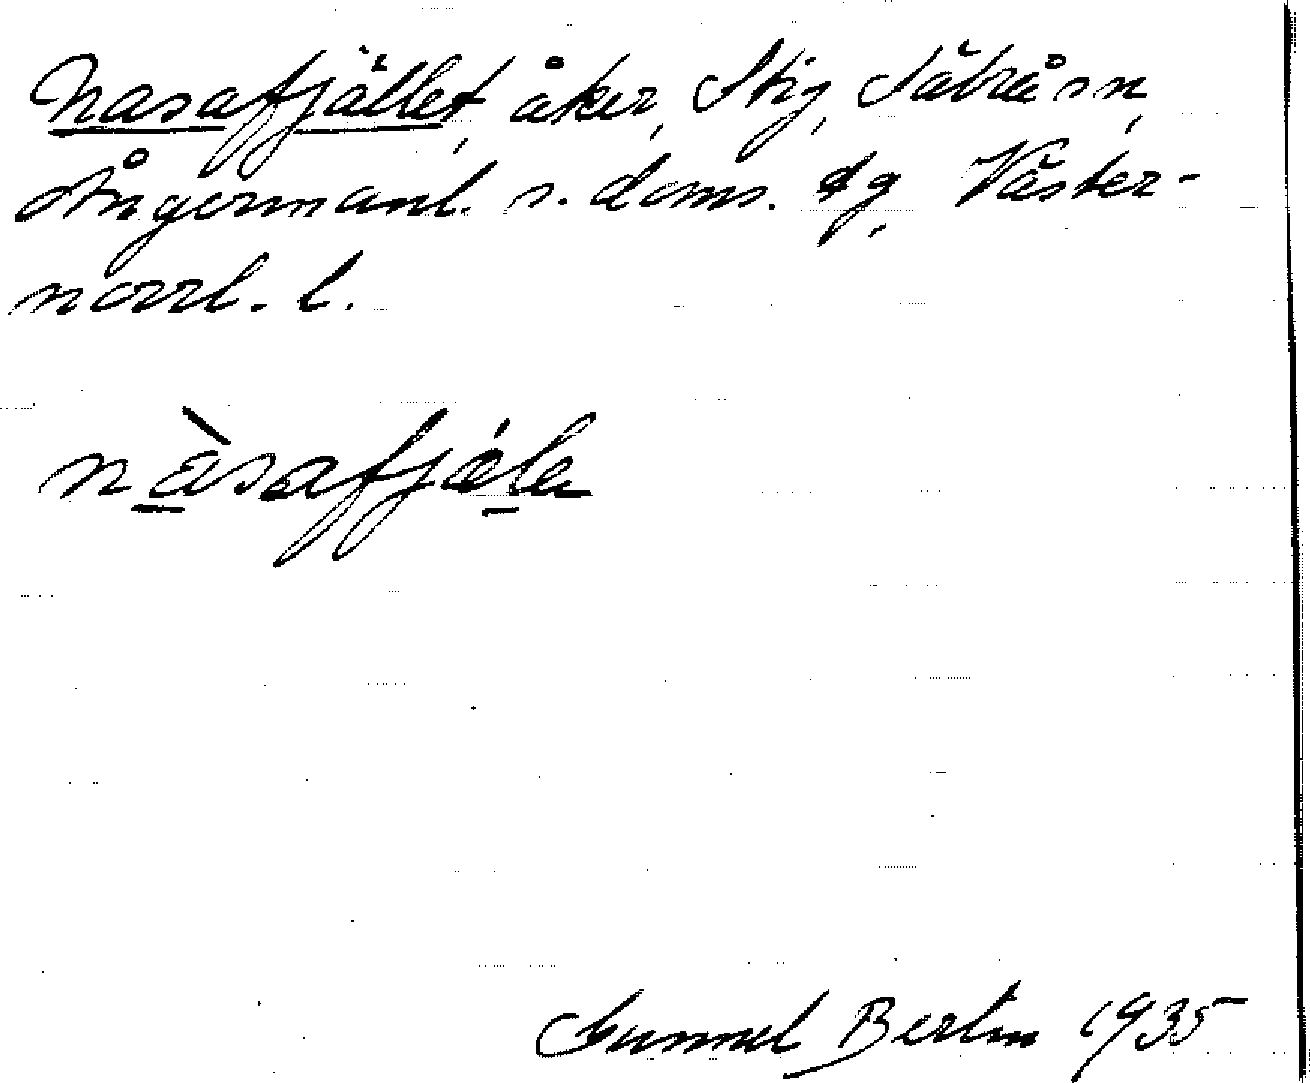 Nasafjället, åker, Stig, Säbrå sn,
Ångermanl. s. doms. dg, Väster-
norrl. l.
nàsafjǽlɐ
Gunnel Berlin 1935